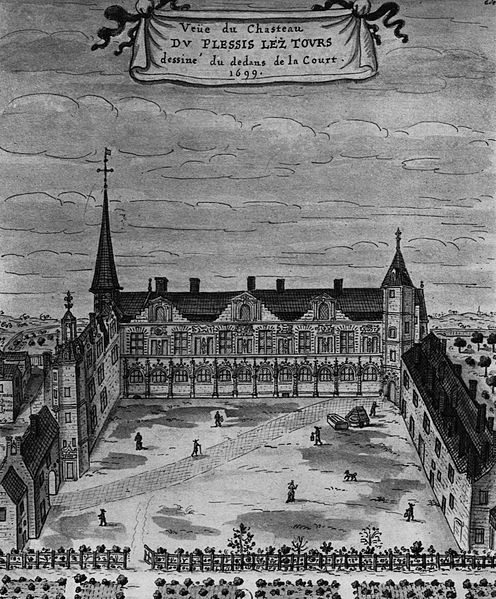 Veüe du Chasteau
DV PLESSIS LÉZ TOVRS
dessiné du dedans de la Court.
1699.